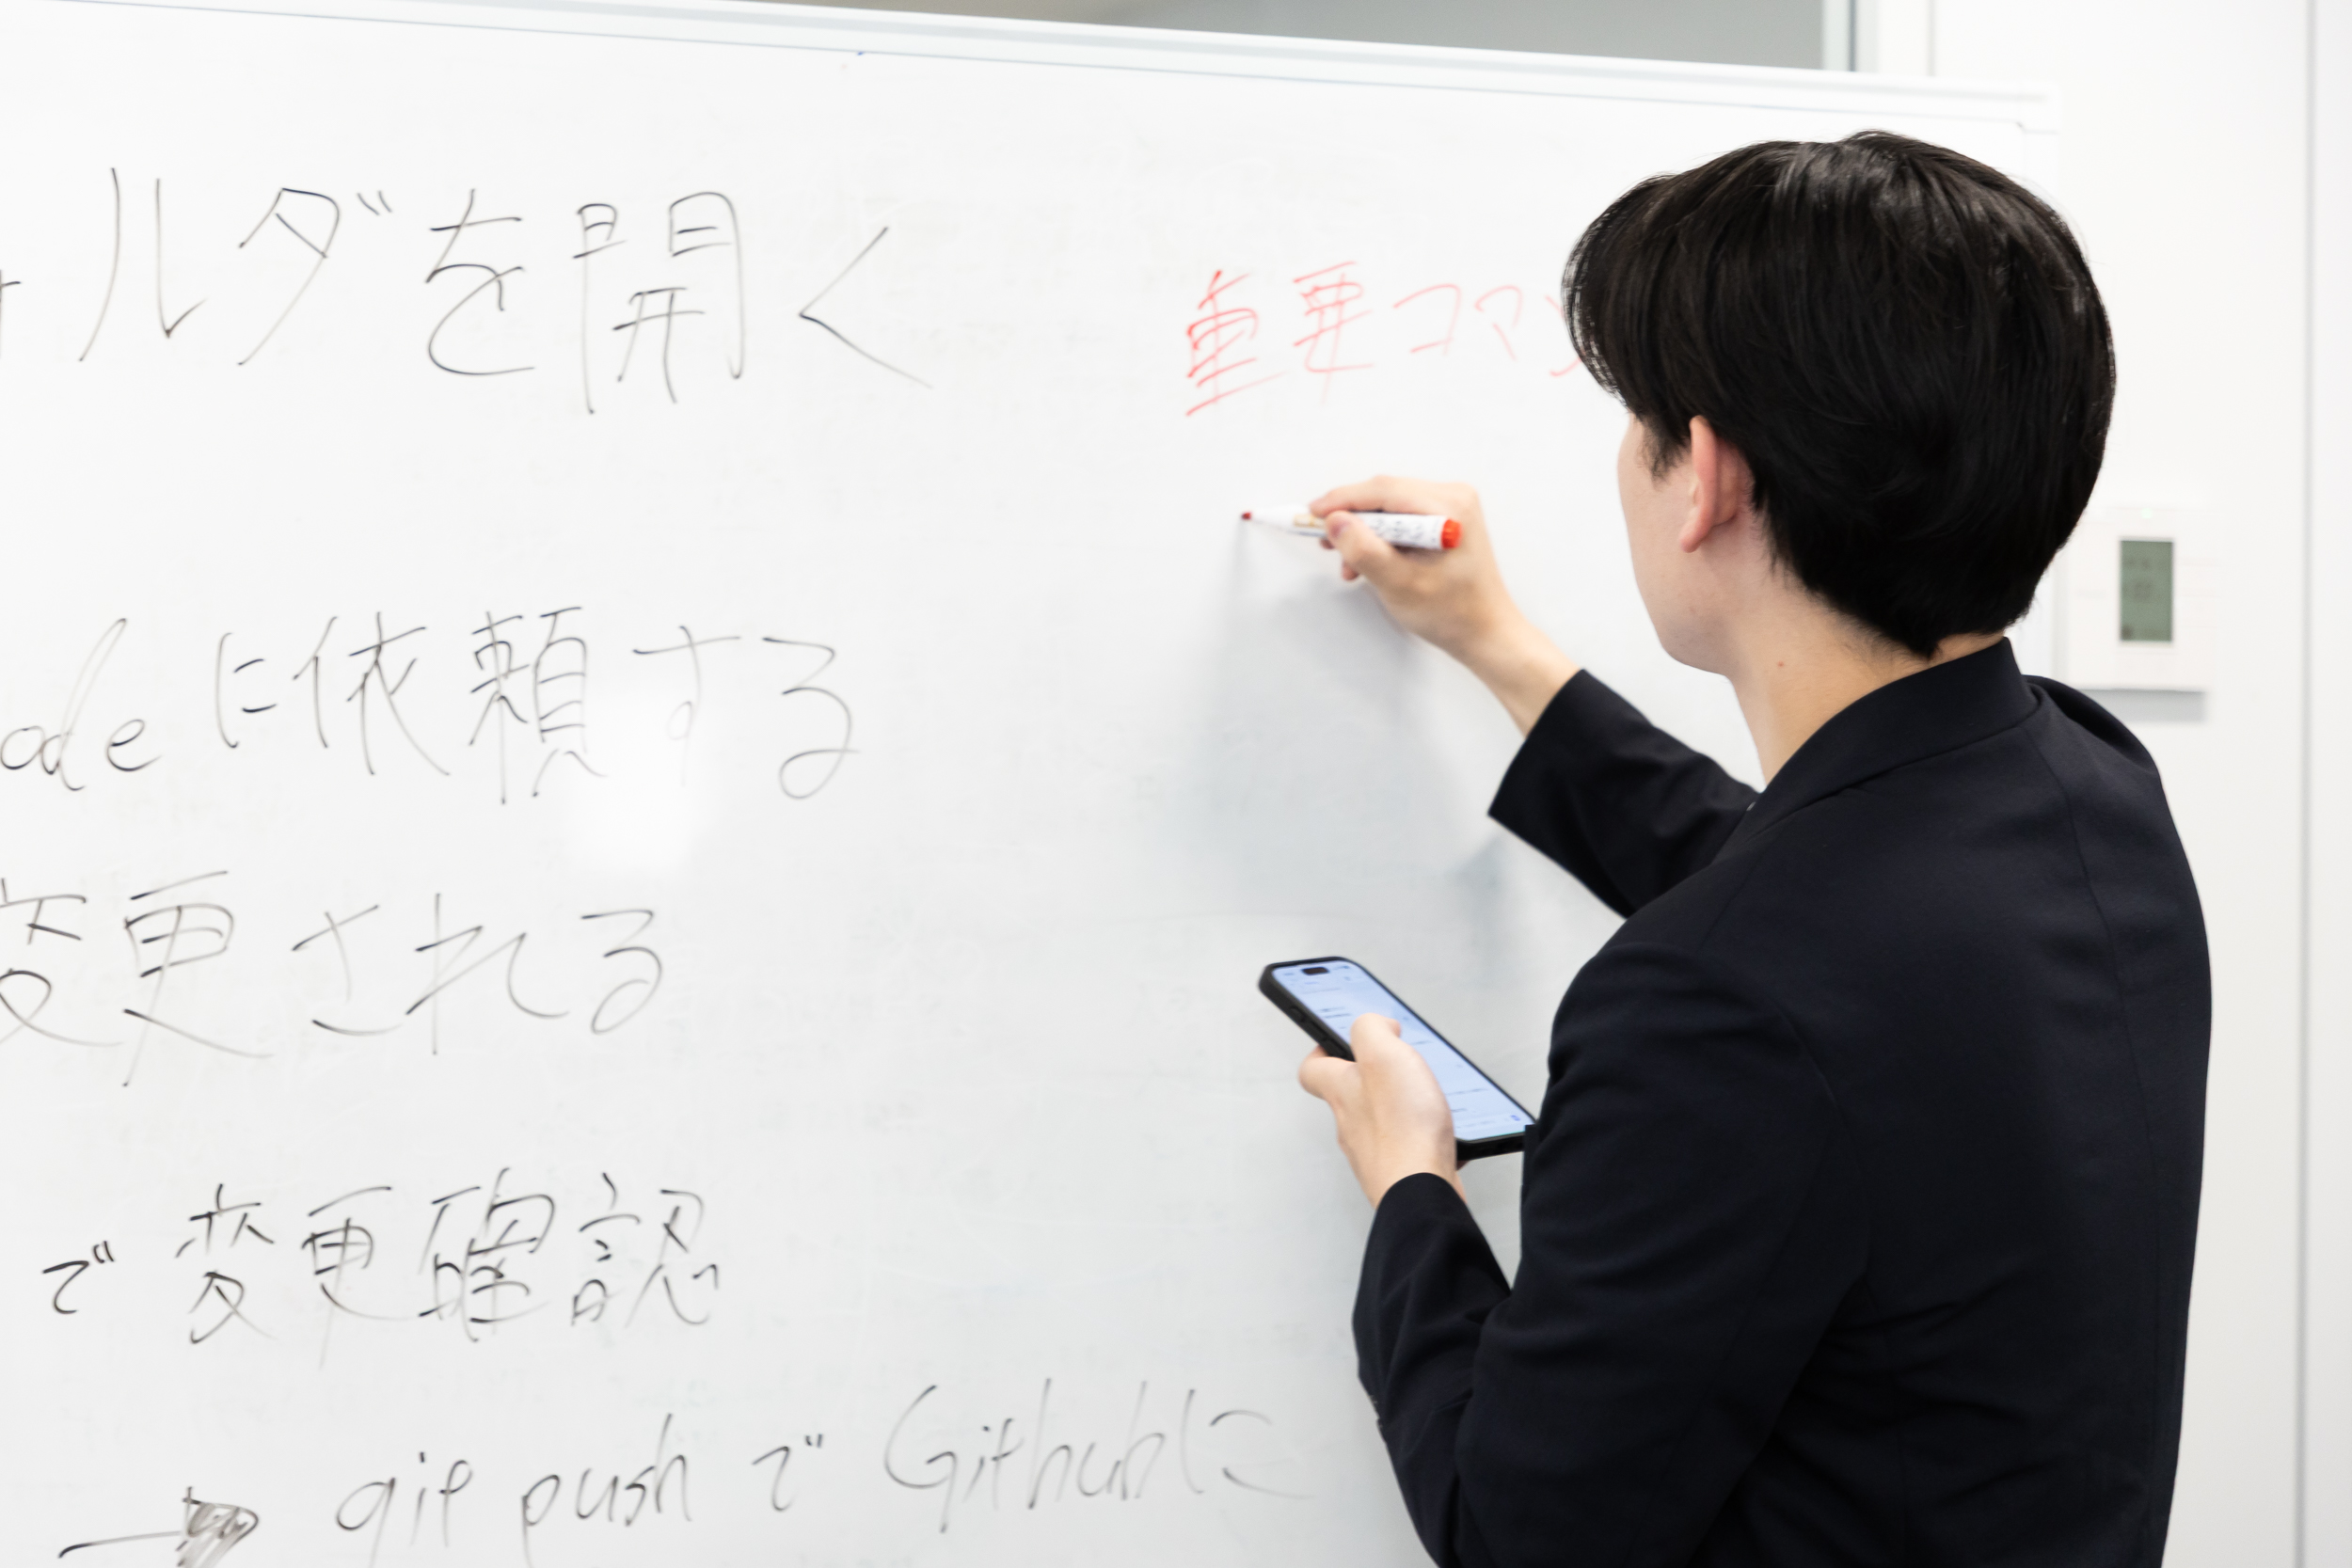 ルダを開く
重要コマン
odeに依頼する
変更される
で変更確認
git pushでGithubに